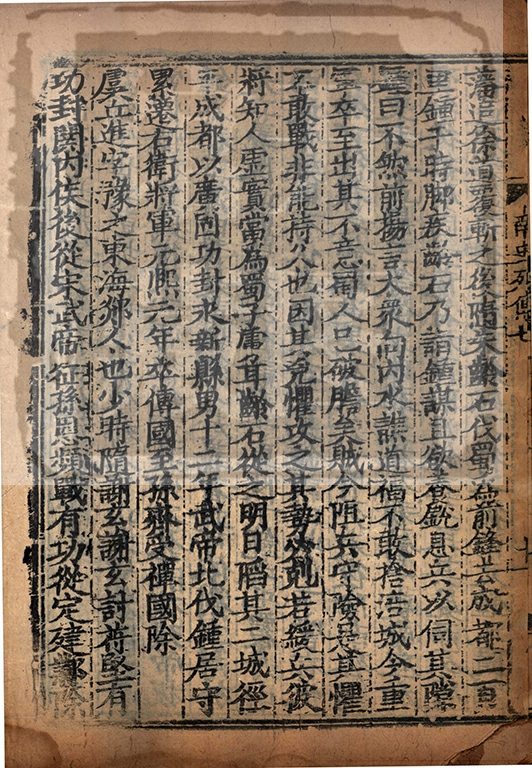 藩追徐道覆斬之後隨朱齡石伐蜀為前鋒去成都二百
里鍾于時脚疾齡石乃詣鍾謀且欲養銳息兵以伺其隙
鍾曰不然前揚言大衆向内水譙道福不敢捨涪城今重
軍卒至出其不意蜀人已破膽矣賊今阻兵守險是其懼
不敢戰非能持久也因其兇懼攻之其勢必剋若緩兵彼
將知人虛實當為蜀子虜耳齡石從之明日陷其二城徑
平成都以廣固功封永新縣男十二年武帝北伐鍾居守
累遷右衛將軍元熙元年卒傳國至孫齊受禪國除
虞丘進字豫之東海郯人也少時隨謝玄謝玄討苻堅有
功封関内侯後從宋武帝征孫恩頻戰有功從定建鄴除